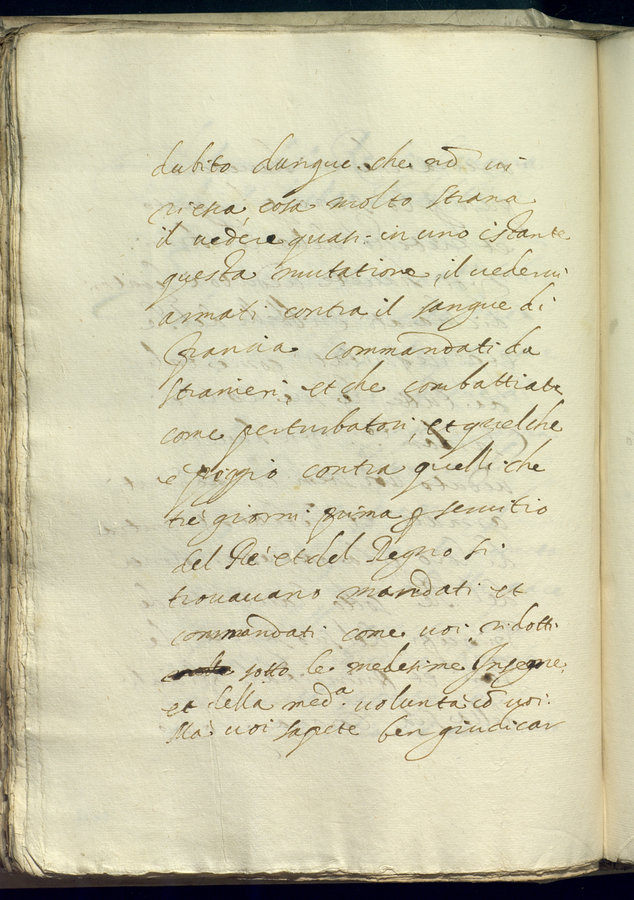 dubito dunque che nō vi
riesca cosa molto strana
il uedere quasi in uno istante
questa mutatione, il uederui
armati contra il sangue di
francia commandati da
stranieri, et che combattiate
come perturbatori, et quelche
è peggio contra quelli che
tre giorni prima p seruitio
del Rè et del Regno si
trouauano mandati et
commandati come uoi ridotti
sotto le medesime Insegne,
et della medᵃ. uoluntà cō uoi.
Ma uoi sapete ben giudicar